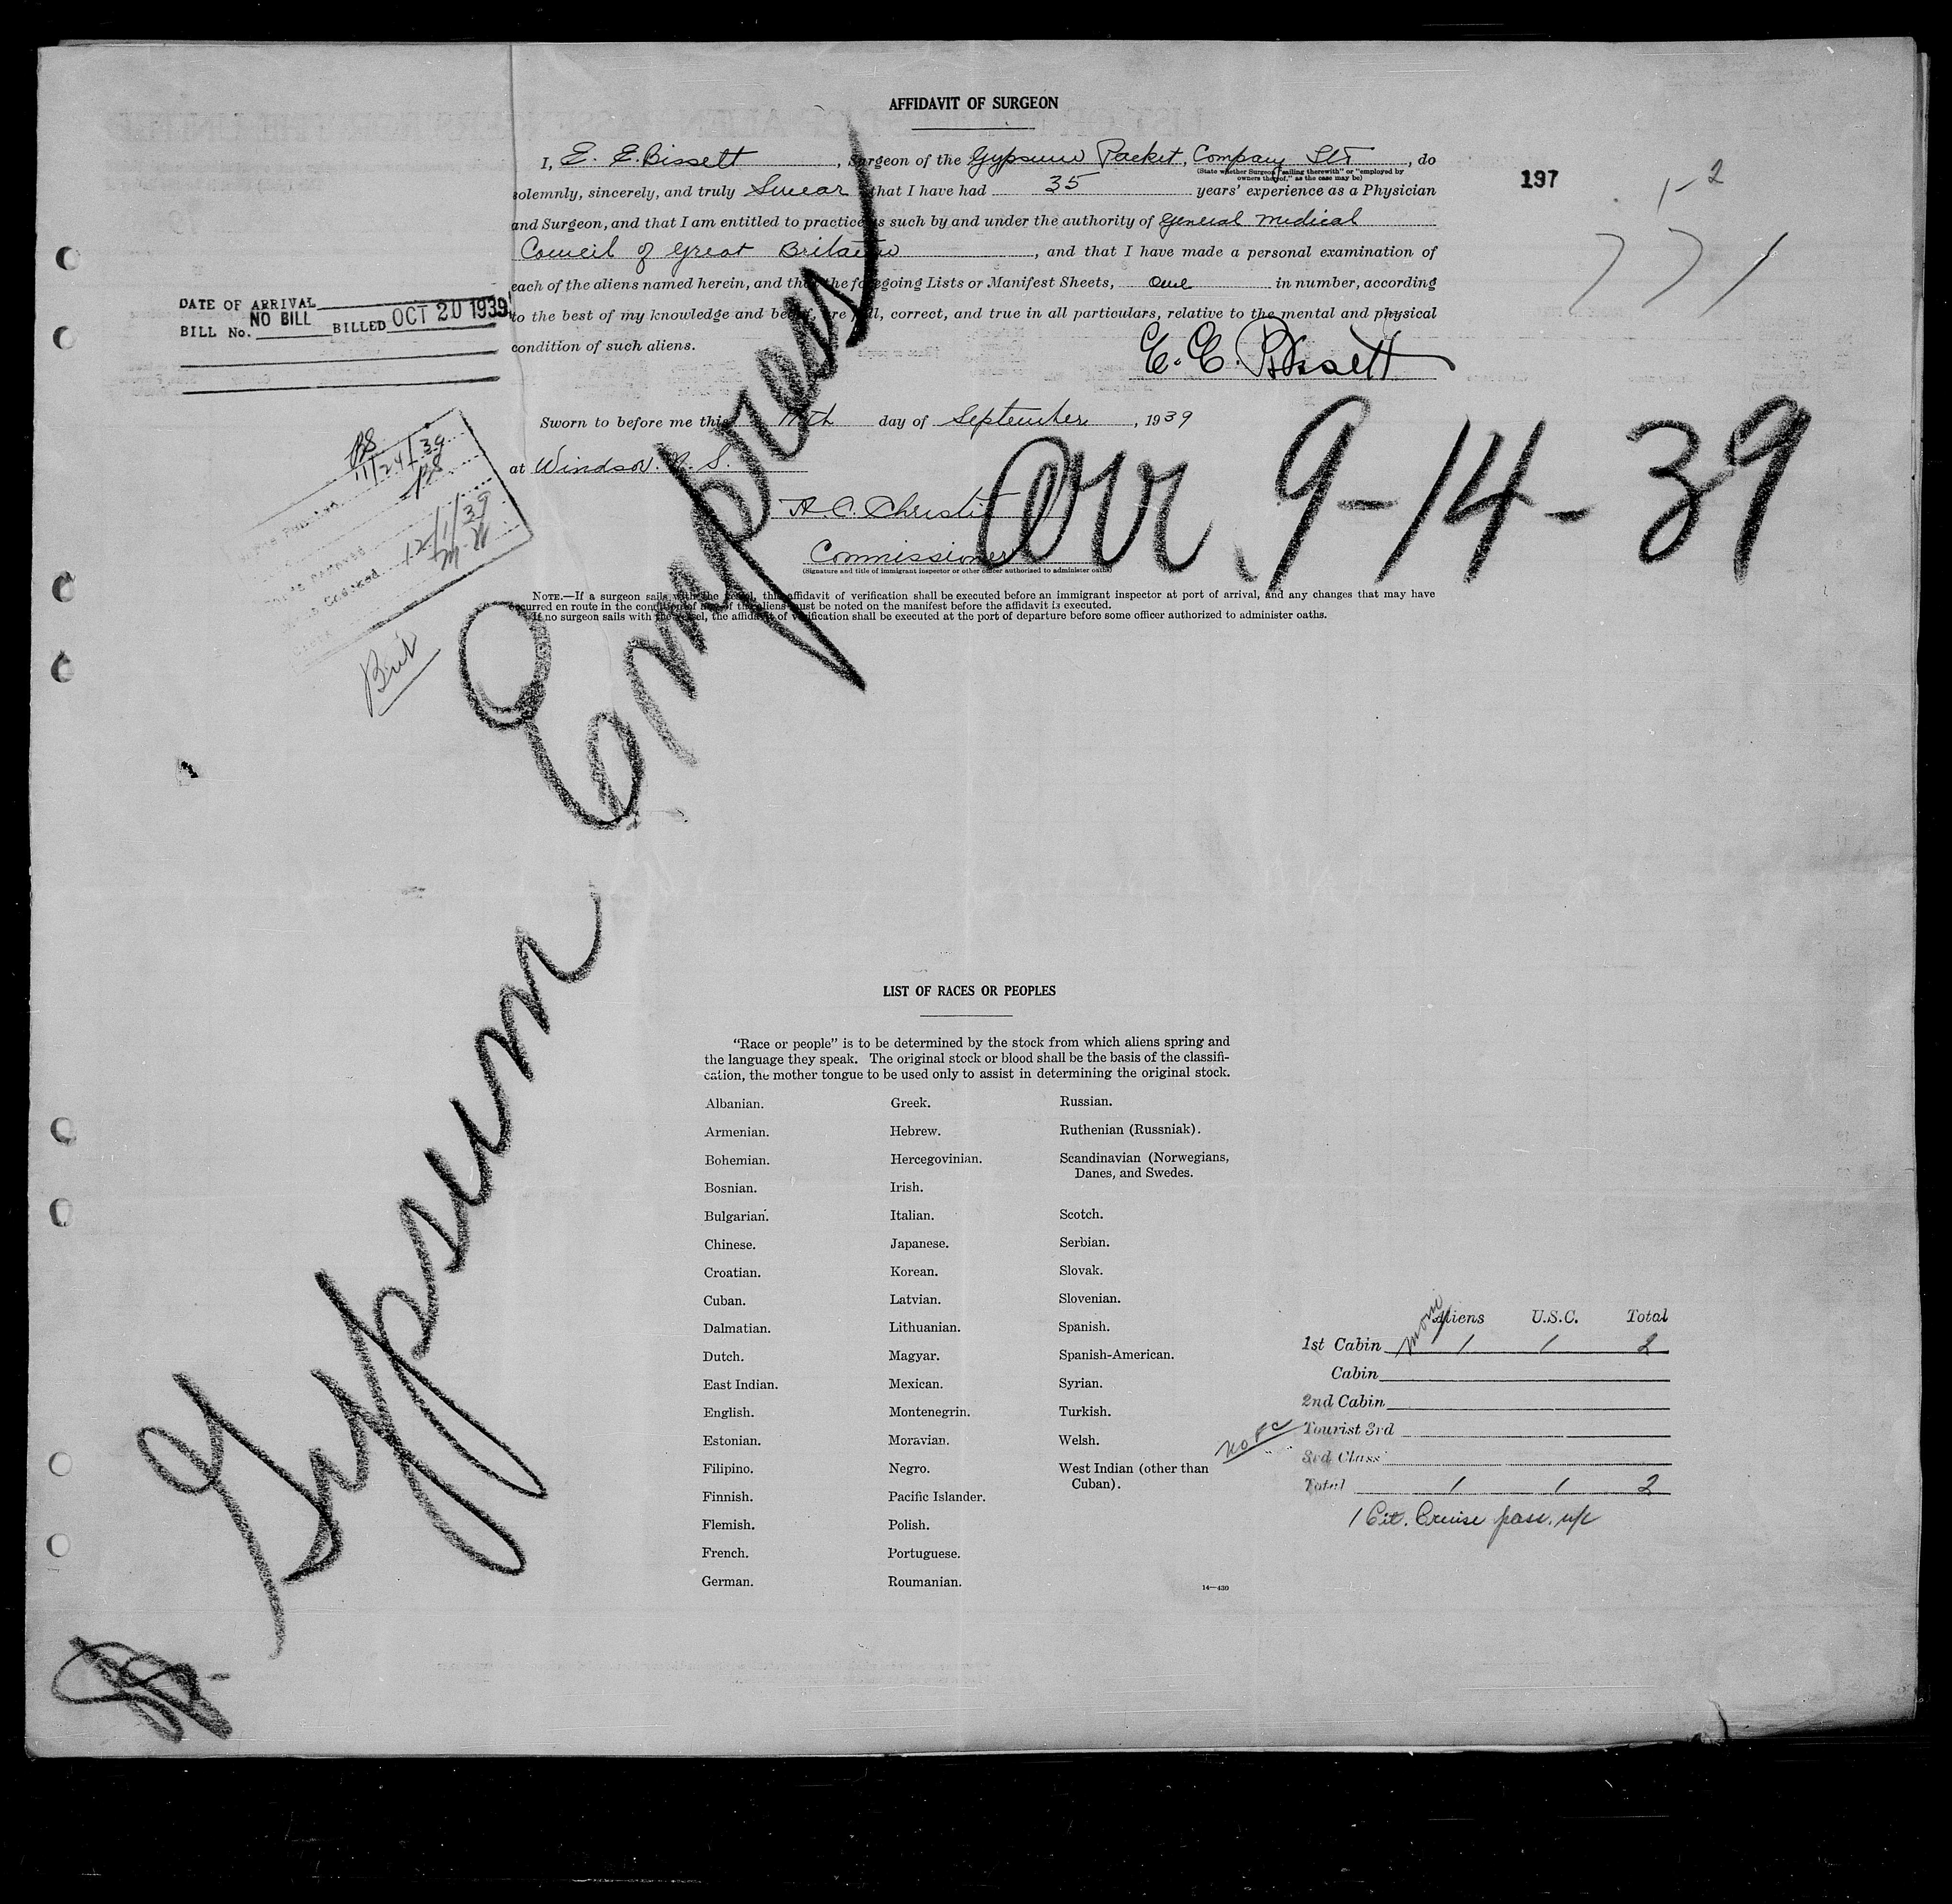 AFFIDAVIT OF SURGEON
I, E. E. Bissett, Surgeon of the Gypsum Packet, Company Ltd, do
(State whether Surgeon "sailing therewith" or "employed by
owners thereof," as the case may be)
solemnly, sincerely, and truly Swear that I have had 35 years' experience as a Physician
and Surgeon, and that I am entitled to practice as such by and under the authority of General Medical
Council of Great Britain, and that I have made a personal examination of
each of the aliens named herein, and that the foregoing Lists or Manifest Sheets, one in number, according
to the best of my knowledge and belief, are full, correct, and true in all particulars, relative to the mental and physical
condition of such aliens.
E. E. Bissett
197
1-2
771
DATE OF ARRIVAL
BILL No. NO BILL BILLED OCT 20 1939
Sworn to before me this 11th day of September, 1939
at Windsor. N. S.
A. C. Christie
Commissioner
(Signature and title of immigrant inspector or other officer authorized to administer oaths)
NOTE.—If a surgeon sails with the vessel, this affidavit of verification shall be executed before an immigrant inspector at port of arrival, and any changes that may have
occurred en route in the condition of any of the aliens must be noted on the manifest before the affidavit is executed.
If no surgeon sails with the vessel, the affidavit of verification shall be executed at the port of departure before some officer authorized to administer oaths.
11/24/39
12/1/39
Brit
Arr. 9-14-39
Gypsum Empress
LIST OF RACES OR PEOPLES
"Race or people" is to be determined by the stock from which aliens spring and
the language they speak. The original stock or blood shall be the basis of the classifi-
cation, the mother tongue to be used only to assist in determining the original stock.
Albanian.
Armenian.
Bohemian.
Bosnian.
Bulgarian.
Chinese.
Croatian.
Cuban.
Dalmatian.
Dutch.
East Indian.
English.
Estonian.
Filipino.
Finnish.
Flemish.
French.
German.
Greek.
Hebrew.
Hercegovinian.
Irish.
Italian.
Japanese.
Korean.
Latvian.
Lithuanian.
Magyar.
Mexican.
Montenegrin.
Moravian.
Negro.
Pacific Islander.
Polish.
Portuguese.
Roumanian.
Russian.
Ruthenian (Russniak).
Scandinavian (Norwegians,
Danes, and Swedes.
Scotch.
Serbian.
Slovak.
Slovenian.
Spanish.
Spanish-American.
Syrian.
Turkish.
Welsh.
West Indian (other than
Cuban).
14—430
Aliens U.S.C. Total
1st Cabin 1 1 2
Cabin
2nd Cabin
note
Tourist 3rd
3rd Class
Total 1 1 2
1 Cit. Cruise pass.